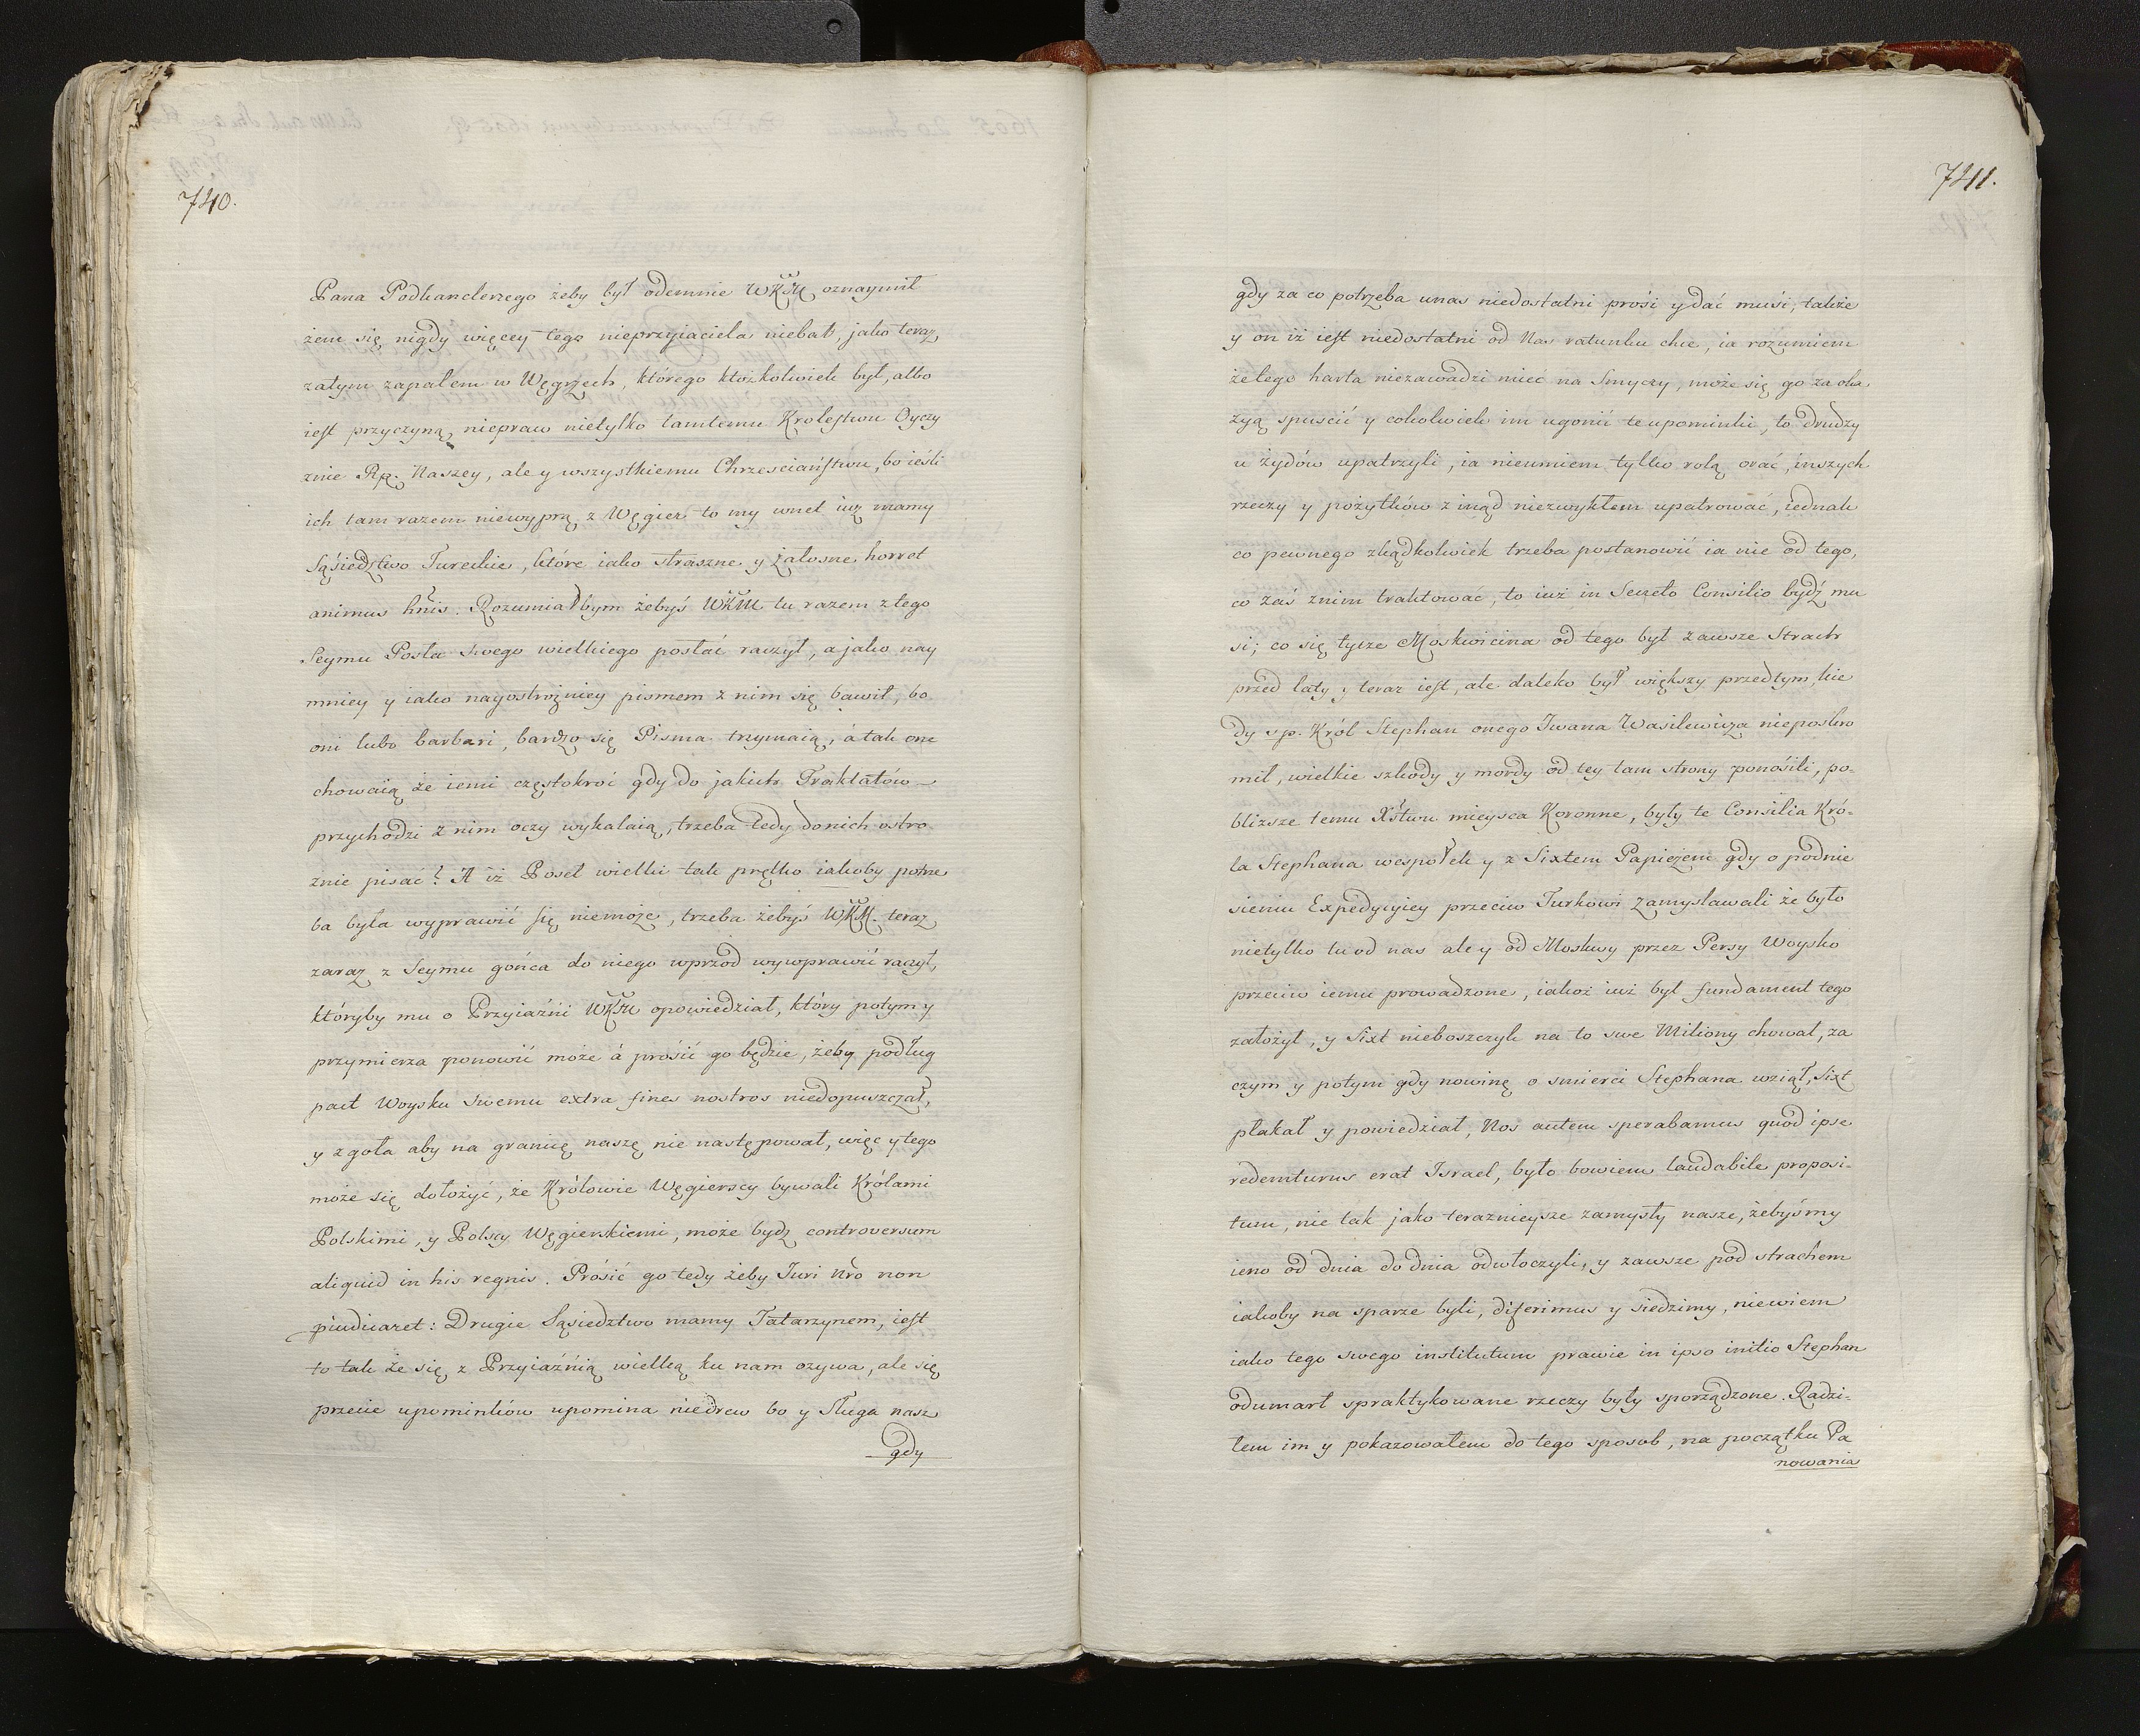 740.
Pana Podkanclerzego żeby był odemnie WKM oznaymił
żem się nigdy więcey tego nieprzyiaciela niebał, jako teraz
zatym zapałem w Węgrzech, którego ktożkolwiek był, albo
iest przyczyną, niepraw nietylko tamtemu Krolestwu Oyczy
znie Rp. Naszey, ale y wszystkiemu Chrzesciaństwu, bo ieśli
ich tam razem niewyprą z Węgier to my wnet iuż mamy
Sąsiedztwo Tureckie, które iako straszne y żałosne horret
animus hnis. Rozumiał bym żebyś WKM tu razem z tego
Seymu Posła swego wielkiego posłać raczył, a jako nay
mniey y iako nayostrożniey pismem z nim się bawił, bo
oni lubo barbari, bardzo się Pisma trzymaią, á tak one
chowaią że iemi częstokroć gdy do jakich Traktatów
przychodzi z nim oczy wykalaią, trzeba tedy do nich ostro
żnie pisać! A iż Poseł wielki tak prętko iakoby potrze
ba była wyprawić się niemoże, trzeba żebyś WKM. teraz
zaraz z Seymu gońca do niego wprzod wywprawić raczył,
któryby mu o Przyiaźni WKM opowiedział, który potym y
przymierza ponowić może á prosić go będzie, żeby podług
pact Woysku swemu extra fines nostros niedopuszczał,
y zgoła aby na granicę naszę nie następował, więc y tego
może się dołożyć, że Królowie Węgierscy bywali Królami
Polskimi, y Polscy Węgierskiemi, może bydz controversum
aliquid in his regnis. Prosić go tedy żeby Juri nro non
piudicaret: Drugie Sąsiedztwo mamy Tatarzynem, iest
to tak że się z Przyiaźnią wielką ku nam ozywa, ale się
przecie upominków upomina niedrew bo y Sługa nasz
gdy
741.
gdy za co potrzeba unas niedostatni prosi y dać musi, także
y on iż iest niedostatni od Nas ratunku chce, ia rozumiem
że tego harta niezawadzi mieć na Smyczy, może się go za oka
zyą spuscić y cokolwiek im ugonić te upominki, to drudzy
u żydów upatrzyli, ia nieumiem tylko rolą orać, inszych
rzeczy y pożytków z inąd niezwykłem upatrować, iednak
co pewnego zkądkolwiek trzeba postanowić ia nie od tego,
co zaś znim traktować, to iuż in Secreto Consilio bydź mu
si; co się tycze Moskwicina od tego był zawsze Strach
przed laty y teraz iest, ale daleko był większy przedtym, kie
dy sp. Król Stephan onego Iwana Wasilewicza nieposkro
mił, wielkie szkody y mordy od tey tam strony ponosili, po-
bliższe temu Xstwu mieysca Koronne, były te Consilia Kró-
la Stephana wespołek y z Sixtem Papieżem gdy o podnie
sieniu Expedycyiey przeciw Turkowi zamyslawali że było
nietylko tu od nas ale y od Moskwy przez Persy Woysko
przeciw iemu prowadzone, iakoż iuż był fundament tego
założył, y Sixt nieboszczyk na to swe Miliony chował, za
czym y potym gdy nowinę o smierci Stephana wziął, Sixt
płakał y powiedział, Nos autem sperabamus quod ipse
redemturus erat Israel, było bowiem laudabile proposi-
tum, nie tak jako teraznieysze zamysły nasze, żebyśmy
ieno od dnia do dnia odwłoczyli, y zawsze pod strachem
iakoby na sparze byli, diferimus y siedzimy, niewiem
iako tego swego institutum prawie in ipso initio Stephan
odumarł spraktykowane rzeczy były sporządzone. Radzi-
łem im y pokazowałem do tego sposob, na początku Pa
nowania